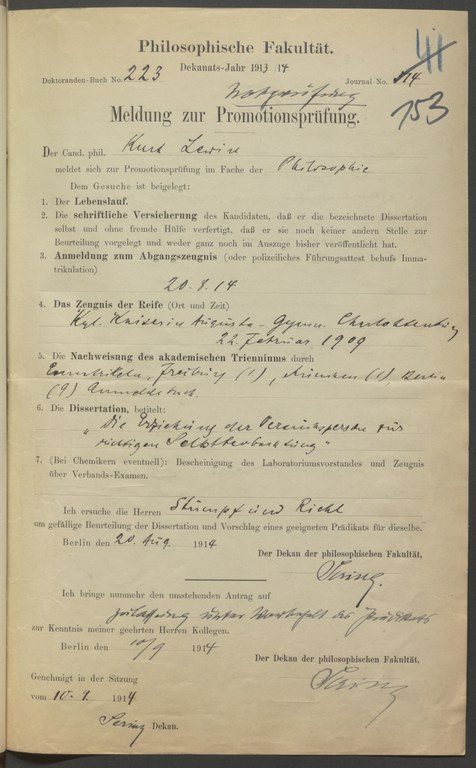 Philosophische Fakultät.
Dekanats-Jahr 1913/14
Doktoranden-Buch No. 223
Journal-No. 114
153
Notprüfung
Meldung zur Promotionsprüfung.
Der Cand. phil. Kurt Lewin
meldet sich zur Promotionsprüfung im Fache der Philosophie
Dem Gesuche ist beigelegt:
1. Der Lebenslauf.
2. Die schriftliche Versicherung des Kandidaten, daß er die bezeichnete Dissertation
selbst und ohne fremde Hülfe verfertigt, daß er sie noch keiner andern Stelle zur
Beurteilung vorgelegt und weder ganz noch im Auszuge bisher veröffentlicht hat.
3. Anmeldung zum Abgangszeugnis (oder polizeiliches Führungsattest behufs Imma-
trikulation)
20.8.14
4. Das Zeugnis der Reife (Ort und Zeit)
Kgl. Kaiserin Augusta-Gymn. Charlottenburg
22. Februar 1909
5. Die Nachweisung des akademischen Trienniums durch
Exmatrikeln, Freiburg (1), München (1), Berlin
(9) Anmeldebuch.
6. Die Dissertation, betitelt:
„Die Erziehung der Versuchsperson zur
richtigen Selbstbeobachtung“
7. (Bei Chemikern eventuell): Bescheinigung des Laboratoriumsvorstandes und Zeugnis
über Verbands-Examen.
Ich ersuche die Herren Stumpf und Riehl
um gefällige Beurteilung der Dissertation und Vorschlag eines geeigneten Prädikats für dieselbe.
Berlin den 20. Aug. 1914
Der Dekan der philosophischen Fakultät,
Sering.
Ich bringe nunmehr den umstehenden Antrag auf
Zulassung unter Vorbehalt des Prädikats
zur Kenntnis meiner geehrten Herren Kollegen.
Berlin den 10/9 1914
Der Dekan der philosophischen Fakultät.
Sering
Genehmigt in der Sitzung
vom 10.9. 1914
Sering Dekan.